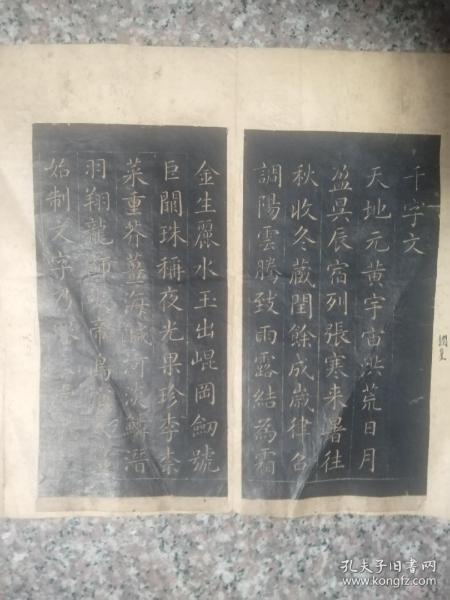 千字文
天地元黃宇宙洪荒日月
盈昃辰宿列張寒来暑往
秋收冬藏閏餘成歲律召
調陽雲騰致雨露結為霜
金生麗水玉出崐岡劒號
巨闕珠稱夜光果珍李柰
菜重芥薑海醎河淡鱗潛
羽翔龍師火帝鳥
始制文字乃
孔夫子旧书网
www.kongfz.com